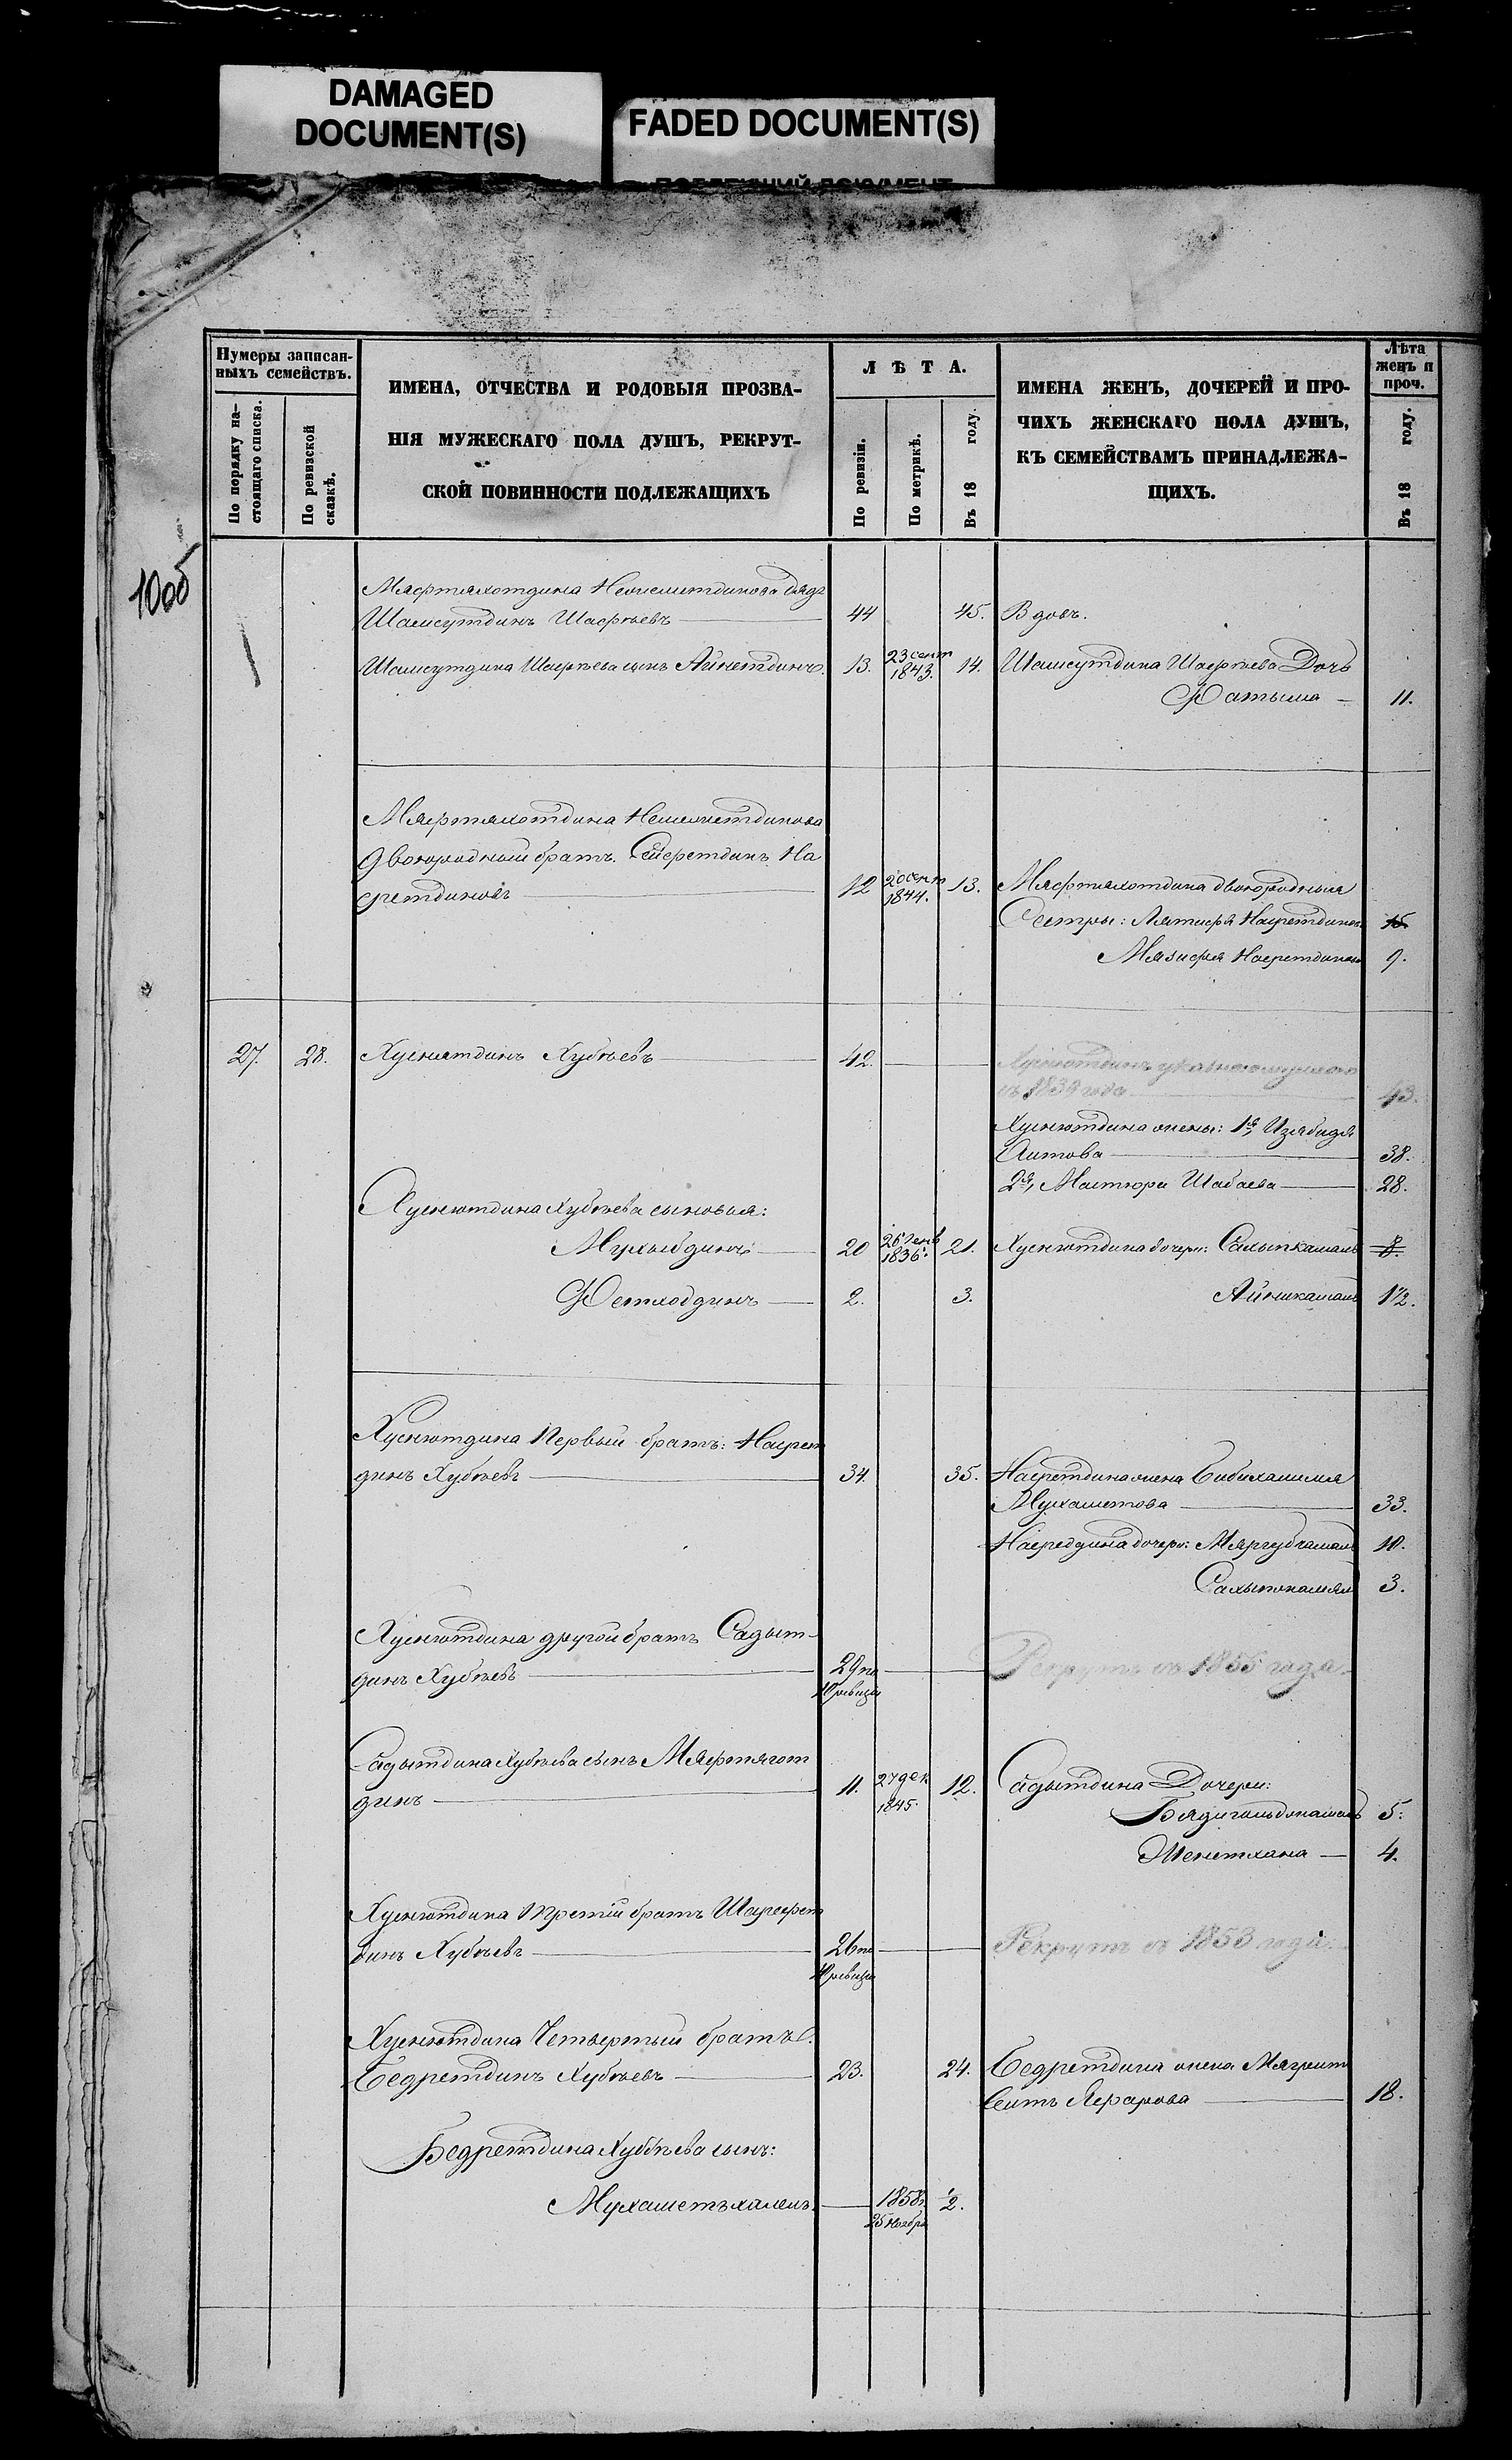 DAMAGED
DOCUMENT(S)
FADED DOCUMENT(S)
Нумеры записан-
ныхъ семействъ.
По порядку на-
стоящаго списка.
По ревизской
сказкѣ.
ИМЕНА, ОТЧЕСТВА И РОДОВЫЯ ПРОЗВА-
НІЯ МУЖЕСКАГО ПОЛА ДУШЪ, РЕКРУТ-
СКОЙ ПОВИННОСТИ ПОДЛЕЖАЩИХЪ
ЛѢТА.
По ревизіи.
По метрикѣ.
Въ 18 году.
ИМЕНА ЖЕНЪ, ДОЧЕРЕЙ И ПРО-
ЧИХЪ ЖЕНСКАГО ПОЛА ДУШЪ,
КЪ СЕМЕЙСТВАМЪ ПРИНАДЛЕЖА-
ЩИХЪ.
Лѣта
женъ и
проч.
Въ 18 году.
100об
Мяфтяхотдина дядя
Шамсутдинъ Шафѣевъ 44 45. Вдовъ.
Шамсутдина Шафѣева сынъ Айнетдинъ. 13. 23 сент 1843. 14. Шамсутдина Шафѣева Дочь
Фатыма 11.
Мяфтяхотдина
двоюродный братъ Сейфетдинъ На
сретдиновъ 12 20 сент 1844. 13. Мяфтяхотдина двоюродныя
Сестры: Лятифя Насретдинова 15
Мязифя Насретдинова 9.
27. 28. Хуснятдинъ Хубѣевъ 42.
въ 1839 года 43.
Хуснютдина жены: 1я, Изябидя
Аитова 38.
2я, Мастюра Шабаева 28.
Хуснютдина Хубѣева сыновья:
Мухыбдинъ 20 26 Генв 1836. 21. Хуснютдина дочери: Салыпкамалъ 8.
Фетхобдинъ 2. 3. Айныкамалъ 1/2.
Хуснютдина первый братъ: Насрет
динъ Хубѣевъ 34. 35. Насретдина жена Бибихашимя
Мухаметова 33.
Насредина дочери: Мяргубкамалъ 10.
Салыпкамалъ 3.
Хуснютдина другой братъ Садыт-
динъ Хубѣевъ 29 по
10 ревизіи
Рекрутъ съ 1855 года.
Садытдина Хубѣева сынъ Мяфтягот
динъ 11. 27 дек 1845. 12. Садытдина Дочери:
5.
4.
Хуснютдина третій братъ Шарефет
динъ Хубѣевъ 26 по
10 ревизіи
Рекрутъ съ 1853 года.
Хуснютдина Четвертый братъ
Бедретдинъ Хубѣевъ 23. 24. Бедретдина жена
18.
Бедретдина Хубѣева сынъ:
Мухаметъхалемъ. 1858 25 Ноября 1/2.